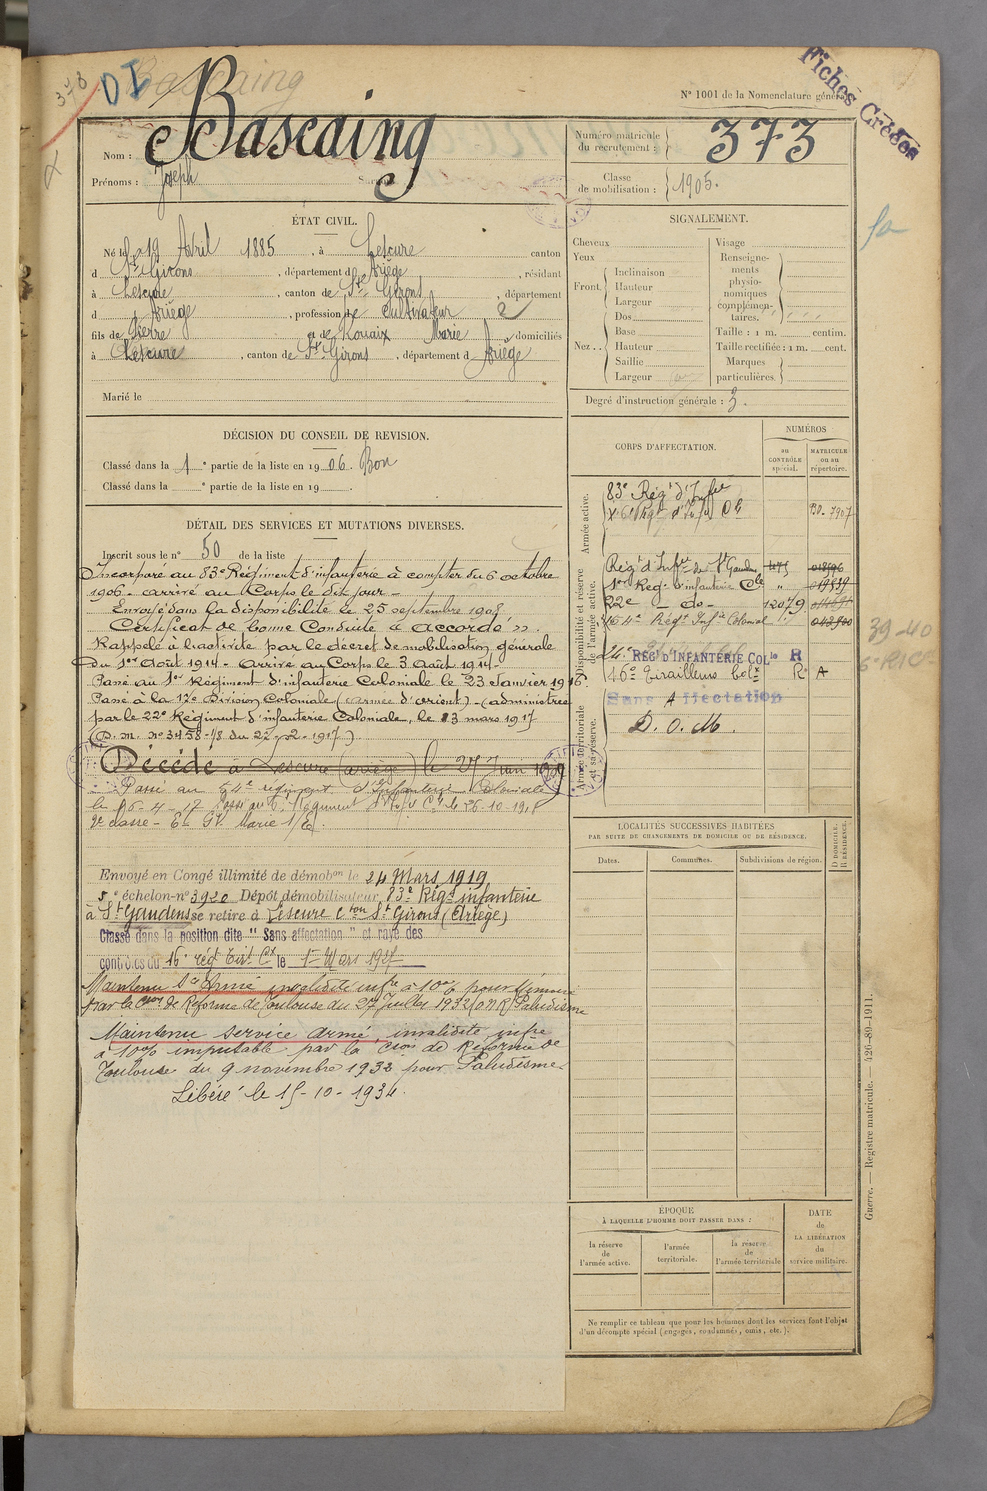 378
DI
Bascaing
Fiches Créées
N° 1001 de la Nomenclature générale.
Nom : Bascaing
Prénoms : Joseph
Numéro matricule du recrutement : 373
Classe de mobilisation : 1905.
ÉTAT CIVIL.
Né le 19 Avril 1885, à Lescure canton
d St Girons, département d Ariège, résidant
à Lescure, canton de St Girons, département
d Ariège, profession de Cultivateur
fils de Pierre et de Rouaix Marie domiciliés
à Lescure, canton de St Girons, département d Ariège
Marié le
SIGNALEMENT.
Cheveux
Yeux
Front. Inclinaison
Hauteur
Largeur
Nez.. Dos
Base
Hauteur
Saillie
Largeur
Visage
Renseignements physionomiques complémentaires.
Taille : 1 m. centim.
Taille rectifiée : 1 m. cent.
Marques particulières.
Degré d'instruction générale : 3.
DÉCISION DU CONSEIL DE REVISION.
Classé dans la 1e partie de la liste en 1906. Bon
Classé dans la e partie de la liste en 19 .
DÉTAIL DES SERVICES ET MUTATIONS DIVERSES.
Inscrit sous le n° 50 de la liste
Incorporé au 83e Régiment d'infanterie à compter du 6 octobre
1906 - arrivé au Corps le dit jour -
Envoyé dans la disponibilité le 25 septembre 1908
Certificat de bonne Conduite « accordé ».
Rappelé à l'activité par le décret de mobilisation générale
du 1er Août 1914 - Arrivé au Corps le 3 Août 1914
Passé au 1er Régiment d'infanterie Coloniale le 23 Janvier 1916.
Passé à la 17e Division Coloniale (armée d'orient) - (administré
par le 22e Régiment d'infanterie Coloniale, le 13 mars 1917
(D.M. n° 3458-1/8 du 22-2-1917)
Décédé à Lescure (Ariège) le 27 Juin 19
Passé au 54e régiment d'Infanterie Coloniale
le 16-4-17 Passé au 6e Régiment d'Infie Cle le 26-10-1918
Envoyé en Congé illimité de démobon le 24 Mars 1919
5e échelon - n° 3920 Dépôt démobilisateur 83e Régt infanterie
à St Gaudens se retire à Lescure cton St Girons (Ariège)
Classé dans la position dite "Sans affectation" et rayé des
contrôles du 16e régt Tirl Cx le 1er Mars 1927
Maintenu Sce Armé invalidité infre à 10% pour
par la Cson de Réforme de Toulouse du 27 Juillet 1932 Paludisme
Maintenu service armé, invalidité infre
à 10% imputable par la Cson de Réforme de
Toulouse du 9 novembre 1932 pour Paludisme.
Libéré le 15-10-1934.
CORPS D'AFFECTATION.
NUMÉROS
au CONTRÔLE spécial.
MATRICULE ou au répertoire.
Armée active.
83e Régt d'Infie
6e Régt d'Infie Cle
Disponibilité et réserve de l'armée active.
Régt d'Infie de St Gaudens
1er Régt d'infanterie Cle
22e - do - 12079
54e Régt Infie Colonial
24e REGt D'INFANTERIE COLle R
16e Tirailleurs Colx R A
Sans Affectation
D. O. M.
Armée territoriale et sa réserve.
39-40
6e RIC
LOCALITÉS SUCCESSIVES HABITÉES
PAR SUITE DE CHANGEMENTS DE DOMICILE OU DE RÉSIDENCE.
Dates.
Communes.
Subdivisions de région.
D DOMICILE. R RÉSIDENCE.
ÉPOQUE
À LAQUELLE L'HOMME DOIT PASSER DANS :
la réserve de l'armée active.
l'armée territoriale.
la réserve de l'armée territoriale
DATE de LA LIBÉRATION du service militaire.
Ne remplir ce tableau que pour les hommes dont les services font l'objet
d'un décompte spécial (engagés, condamnés, omis, etc.).
Guerre. — Registre matricule. — 426-89-1911.